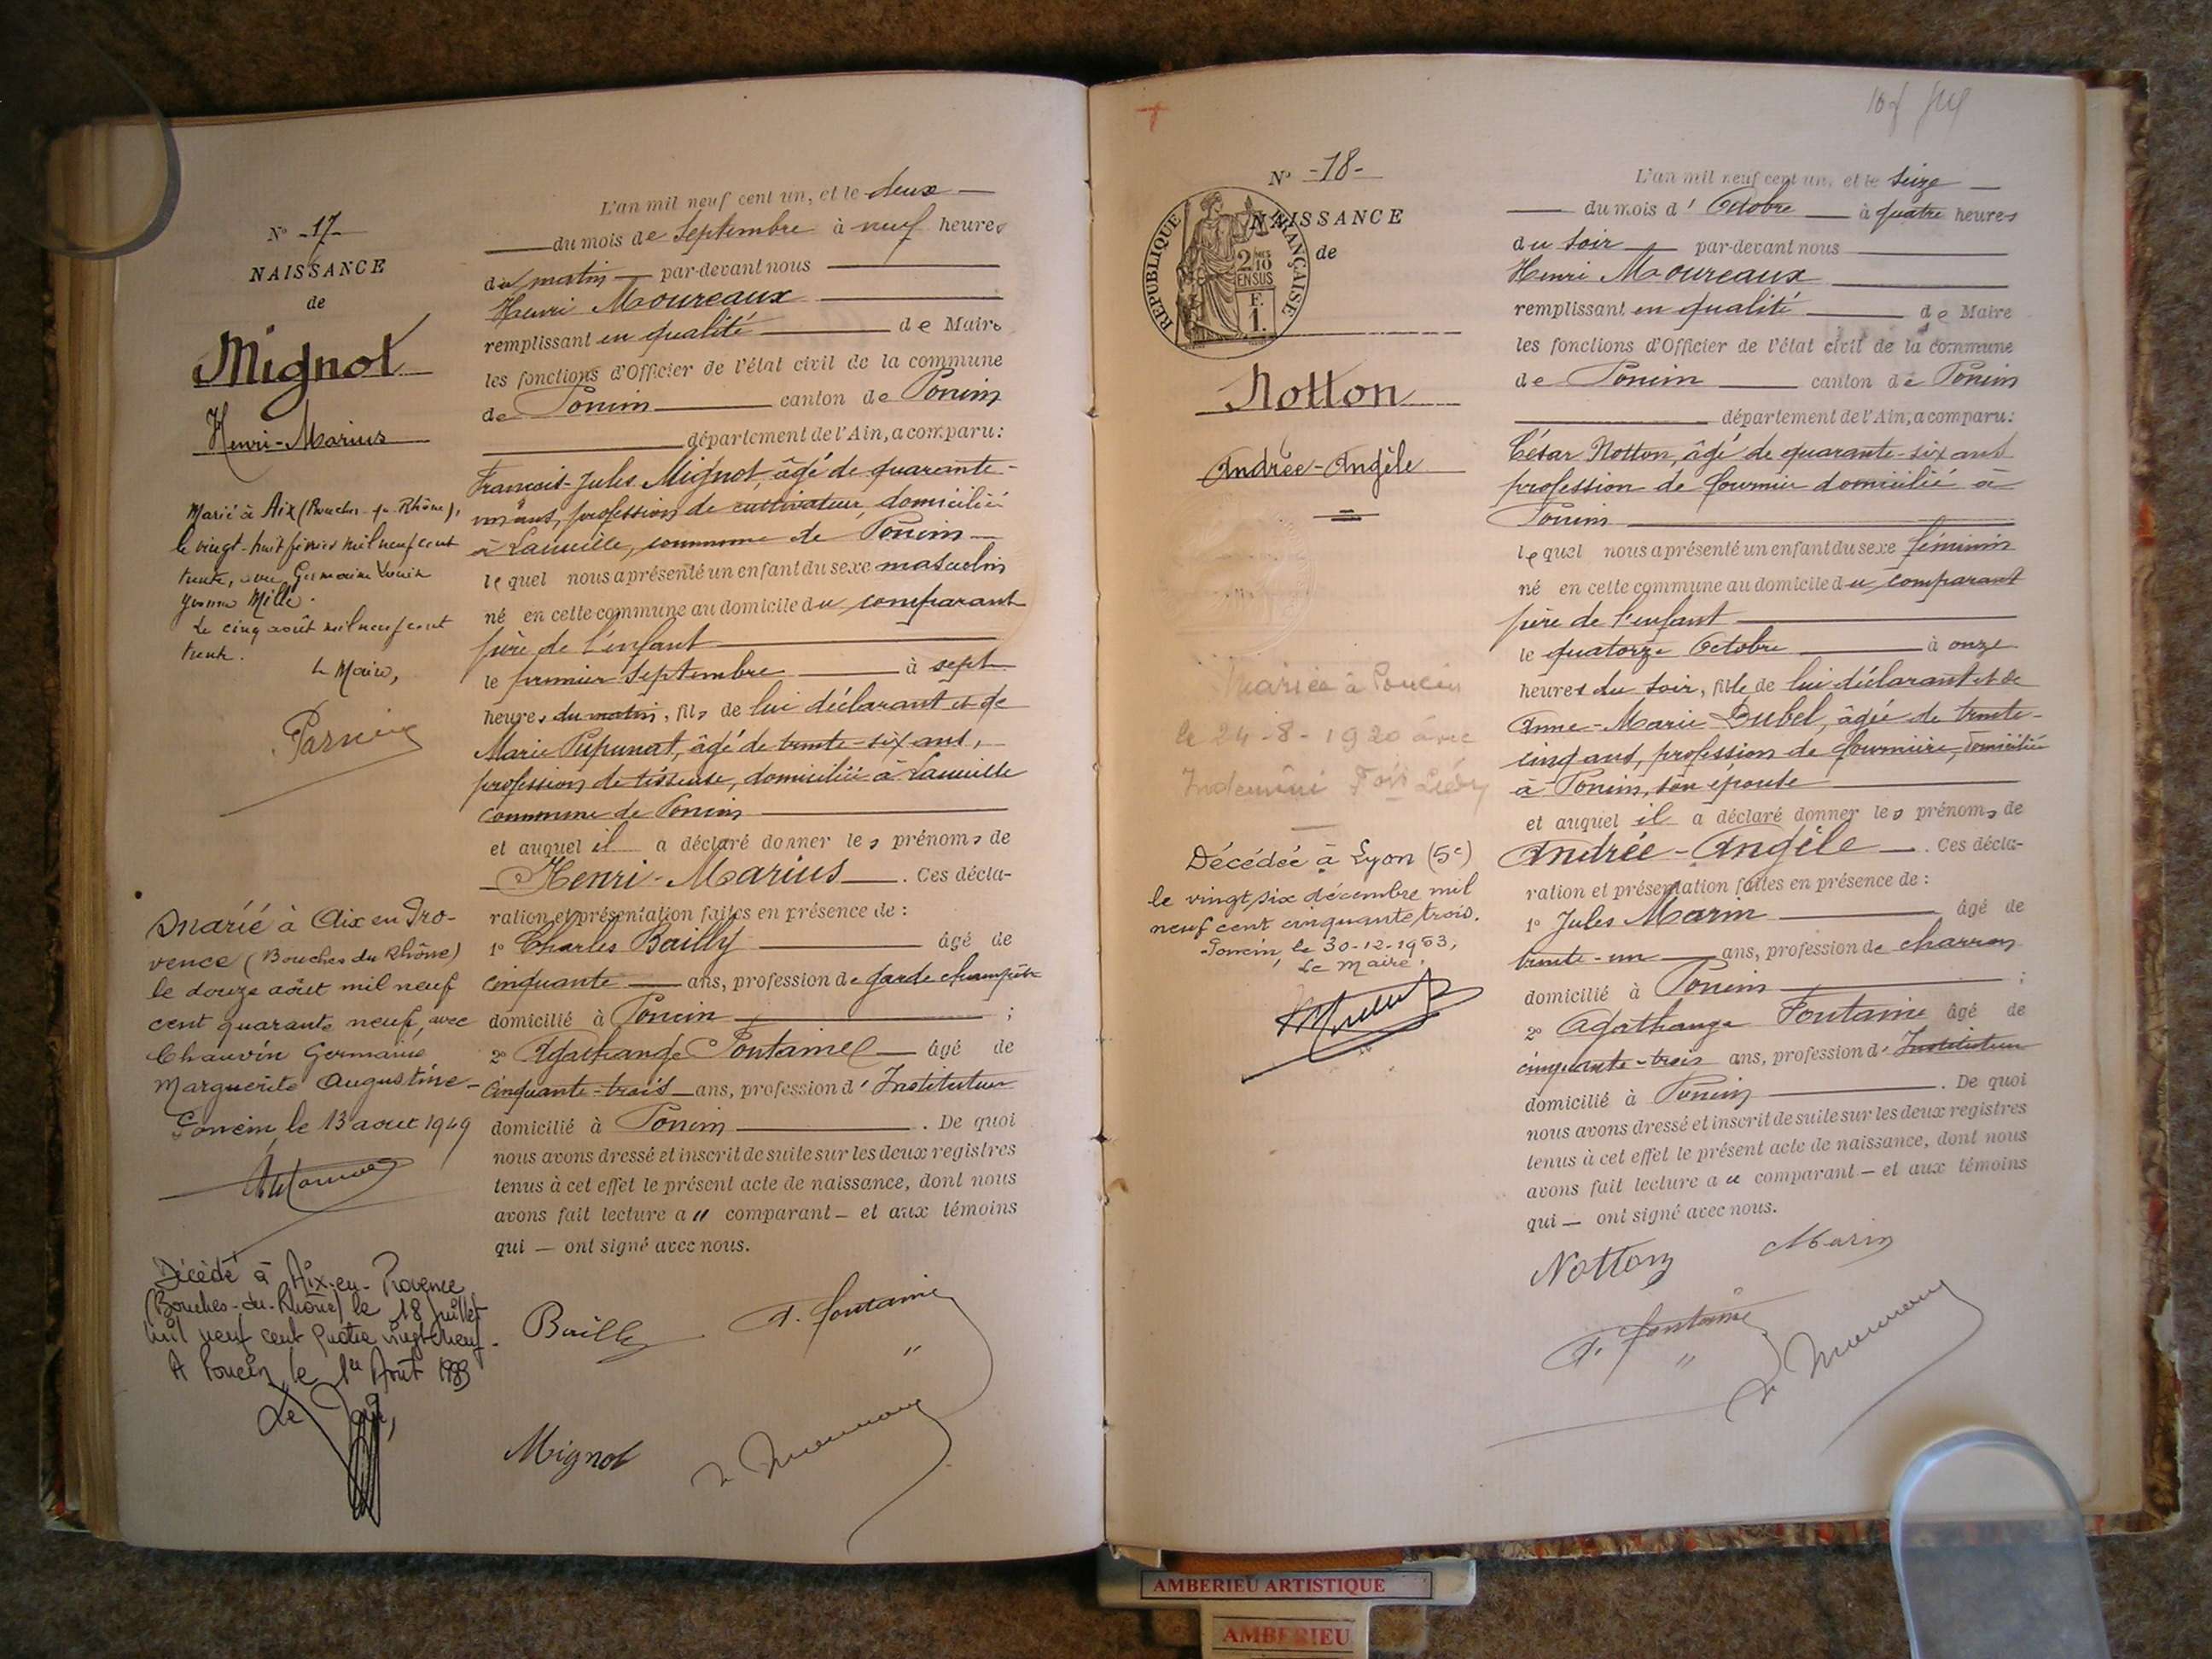 N° -17-
NAISSANCE
de
Mignot
Henri-Marius
Marié à Aix (Bouches-du-Rhône),
le vingt-huit février mil neuf cent
trente, avec Germaine Louise
Yvonne Mille.
Le cinq août mil neuf cent
trente.
Le Maire,
Marié à Aix en Pro-
vence (Bouches du Rhône)
le douze août mil neuf
cent quarante neuf, avec
Chauvin Germaine
Marguerite Augustine -
Poncin le 13 aout 1949
Décédé à Aix-en-Provence
(Bouches-du-Rhône) le 18 juillet
mil neuf cent quatre vingt neuf.
A Poncin le 1er Août 1989
Le
L'an mil neuf cent un, et le deux
du mois de Septembre à neuf heures
du matin par-devant nous
Henri Moureaux
remplissant en qualité de Maire
les fonctions d'Officier de l'état civil de la commune
de Poncin canton de Poncin
département de l'Ain, a comparu:
François-Jules Mignot, âgé de quarante-
un ans, profession de cultivateur, domicilié
à Lavueille, commune de Poncin
lequel nous a présenté un enfant du sexe masculin
né en cette commune au domicile du comparant
père de l'enfant
le premier Septembre à sept
heures du matin, fils de lui déclarant et de
Marie Pupunat, âgé de trente-six ans,
profession de tisseuse, domiciliée à Lavueille
commune de Poncin
et auquel il a déclaré donner les prénoms de
Henri-Marius. Ces décla-
ration et présentation faites en présence de:
1° Charles Bailly âgé de
cinquante ans, profession de garde champêtre
domicilié à Poncin ;
2° Agathange Fontaine âgé de
cinquante-trois ans, profession d'Instituteur
domicilié à Poncin. De quoi
nous avons dressé et inscrit de suite sur les deux registres
tenus à cet effet le présent acte de naissance, dont nous
avons fait lecture au comparant et aux témoins
qui ont signé avec nous.
Bailly A. Fontaine
Mignot
N° -18-
NAISSANCE
de
RÉPUBLIQUE FRANÇAISE
2/10 EN SUS
F. 1.
Notton
Andrée-Angèle
Mariée à Poncin
le 24-8-1920 avec
Décédée à Lyon (5e)
le vingt six décembre mil
neuf cent cinquante trois.
Poncin, le 30-12-1953,
Le Maire.
L'an mil neuf cent un, et le seize
du mois d'Octobre à quatre heures
du soir par-devant nous
Henri Moureaux
remplissant en qualité de Maire
les fonctions d'Officier de l'état civil de la commune
de Poncin canton de Poncin
département de l'Ain, a comparu:
César Notton, âgé de quarante-six ans
profession de fournier domicilié à
Poncin
lequel nous a présenté un enfant du sexe féminin
né en cette commune au domicile du comparant
père de l'enfant
le quatorze Octobre à onze
heures du soir, fille de lui déclarant et de
Anne-Marie Dubel, âgée de trente-
cinq ans, profession de fournière, domiciliée
à Poncin, son épouse
et auquel il a déclaré donner les prénoms de
Andrée-Angèle. Ces décla-
ration et présentation faites en présence de:
1° Jules Marin âgé de
trente-un ans, profession de charron
domicilié à Poncin ;
2° Agathange Fontaine âgé de
cinquante-trois ans, profession d'Instituteur
domicilié à Poncin. De quoi
nous avons dressé et inscrit de suite sur les deux registres
tenus à cet effet le présent acte de naissance, dont nous
avons fait lecture au comparant et aux témoins
qui ont signé avec nous.
Notton Marin
A. Fontaine
AMBERIEU ARTISTIQUE
AMBERIEU